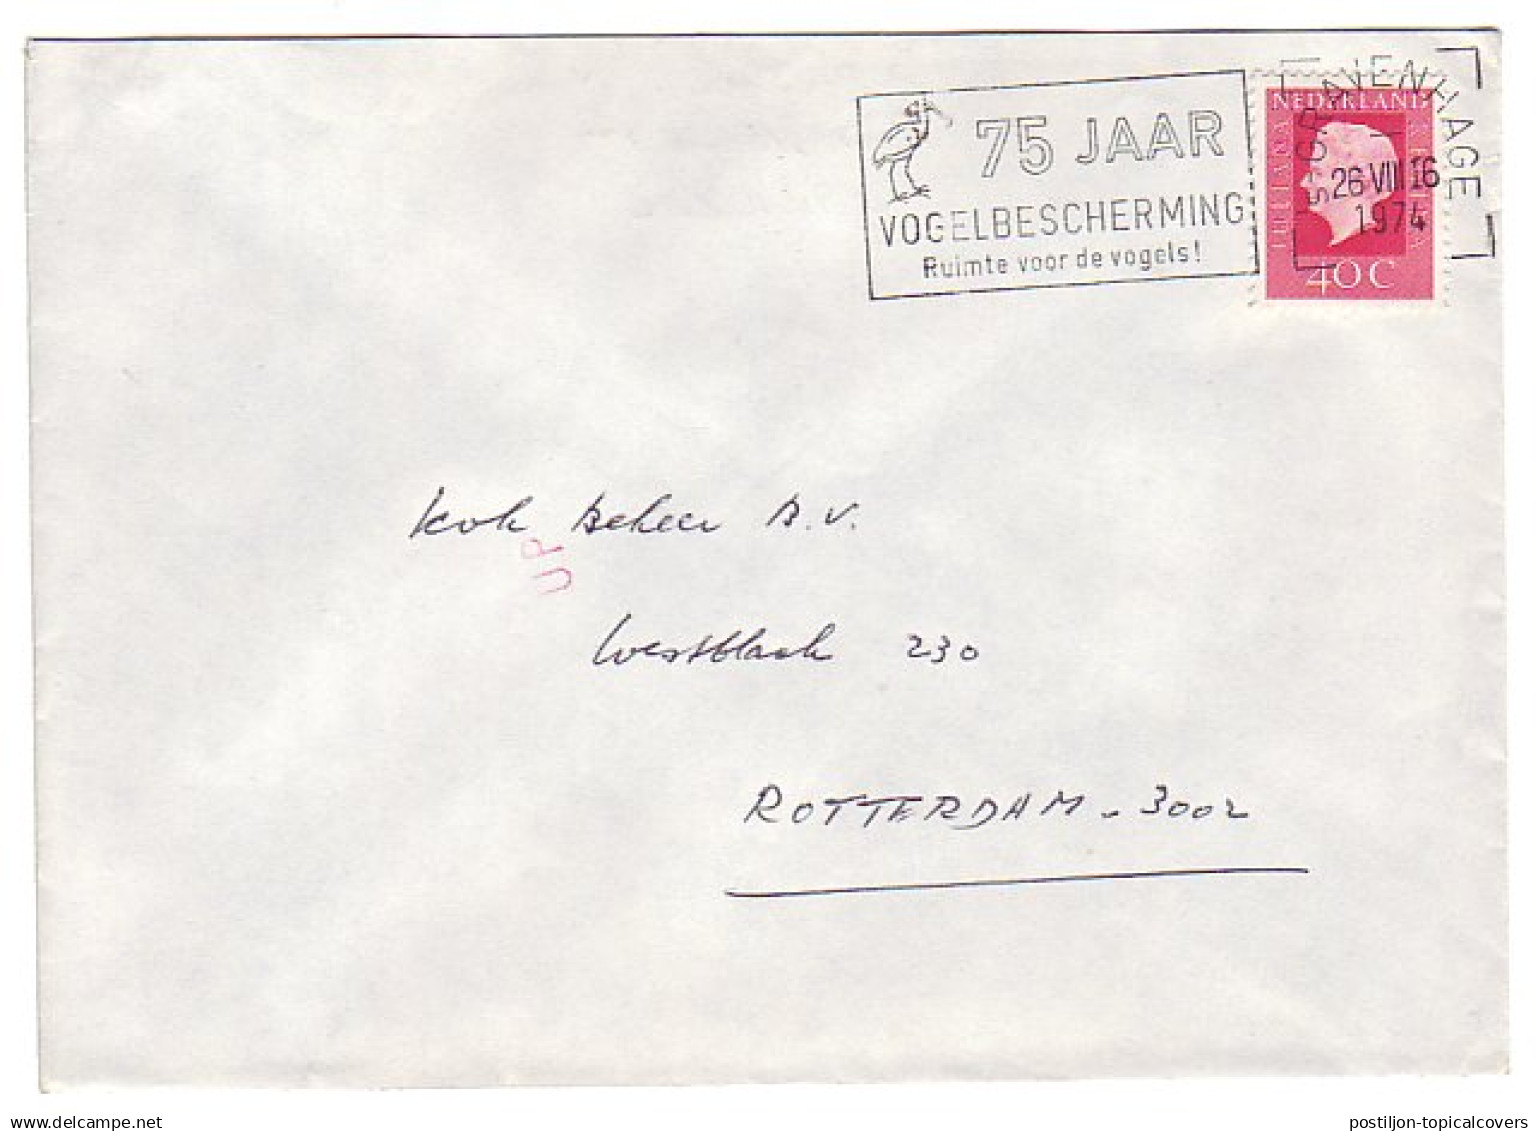 75 JAAR
VOGELBESCHERMING
Ruimte voor de vogels!
NEDERLAND
JULIANA REGINA
40 C
'S-GRAVENHAGE
26 VIII 16
1974
Kok Beheer B.V.
UP
Westblaak 230
ROTTERDAM - 3002
© DELCAMPE.net
postiljon-topicalcovers